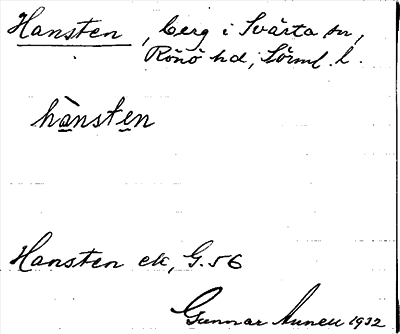 Hansten, berg i Svärta sn,
Rönö hd, Sörml. l.
hànsten
Hansten ek, G.56
Gunnar 1932